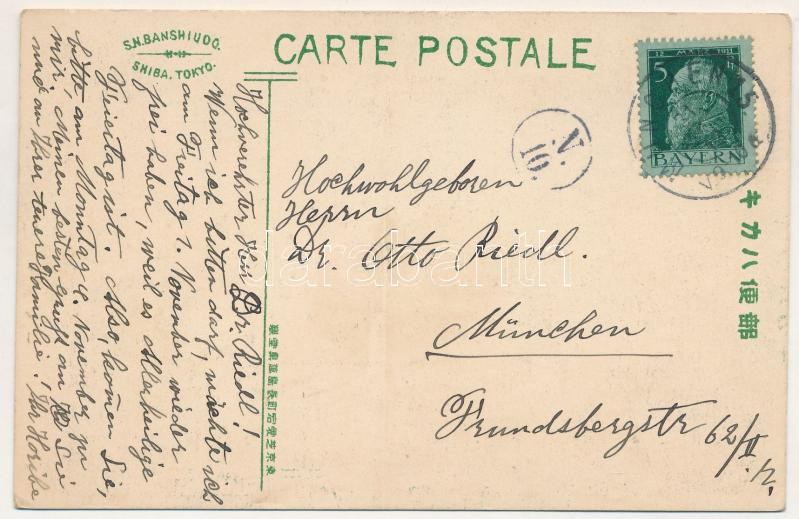 S.N.BANSHIUDO.
SHIBA. TOKYO.
CARTE POSTALE
Hochverehrter Herr Dr. Riedl!
Wenn ich bitten darf, möchte ich
am Freitag 1. November wieder
frei haben, weil es Allerheilige
Feiertag ist. Also, kommen Sie,
bitte am Montag 4. November zu
mir, Meinen besten Gruß an Sie
und an Ihrer teuere Familie! Ihr Horibe
V.
19.
12 MÄRZ 1911
5
BAYERN
Hochwohlgeboren
Herrn
Dr. Otto Riedl.
München
Frundsbergstr 62/II r.
キカハ便郵
darabanth